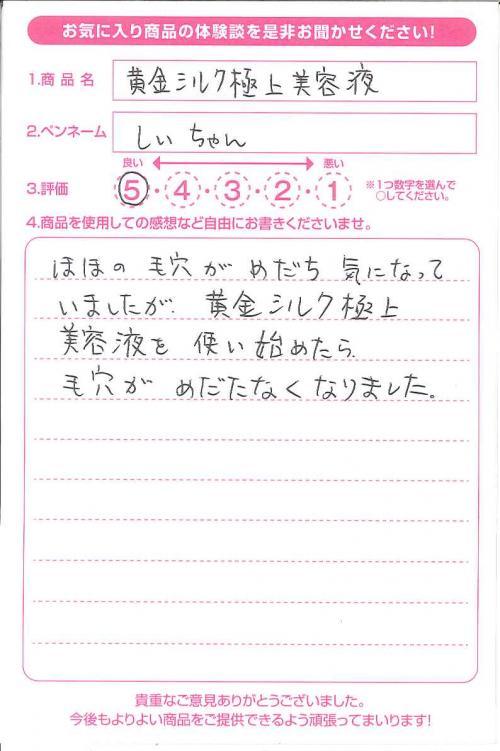 お気に入り商品の体験談を是非お聞かせください!
1.商品名 黄金シルク極上美容液
2.ペンネーム しぃちゃん
良い 悪い
3.評価 5・4・3・2・1 ※1つ数字を選んで
○してください。
4.商品を使用しての感想など自由にお書きくださいませ。
ほほの毛穴がめだち気になって
いましたが、黄金シルク極上
美容液を使い始めたら、
毛穴がめだたなくなりました。
貴重なご意見ありがとうございました。
今後もよりよい商品をご提供できるよう頑張ってまいります!